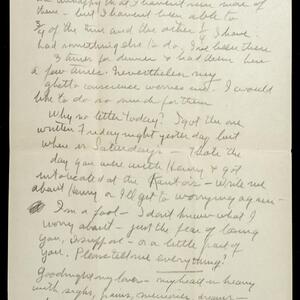 that I haven't seen more of
them - but I haven't been able to
3/4 of the time and the other 1/4 I have
had something else to do, I've been there
3 times for dinner & had them here
a few times. Nevertheless my
ghetto conscience worries and I would
like to do so much for them
Why no letter today? I got the one
written Friday night yesterday but
where is Saturday's - I hate the
day you were with Henry & got
intoxicated at the - write me
about Henry or I'll get to worrying again -
I'm a fool - I don't know what I
worry about - just the fear of losing
you, I suppose - or a little part of
you. Please tell me everything!
Goodnight my lover - my head is heavy
with sighs, memories, dreams -